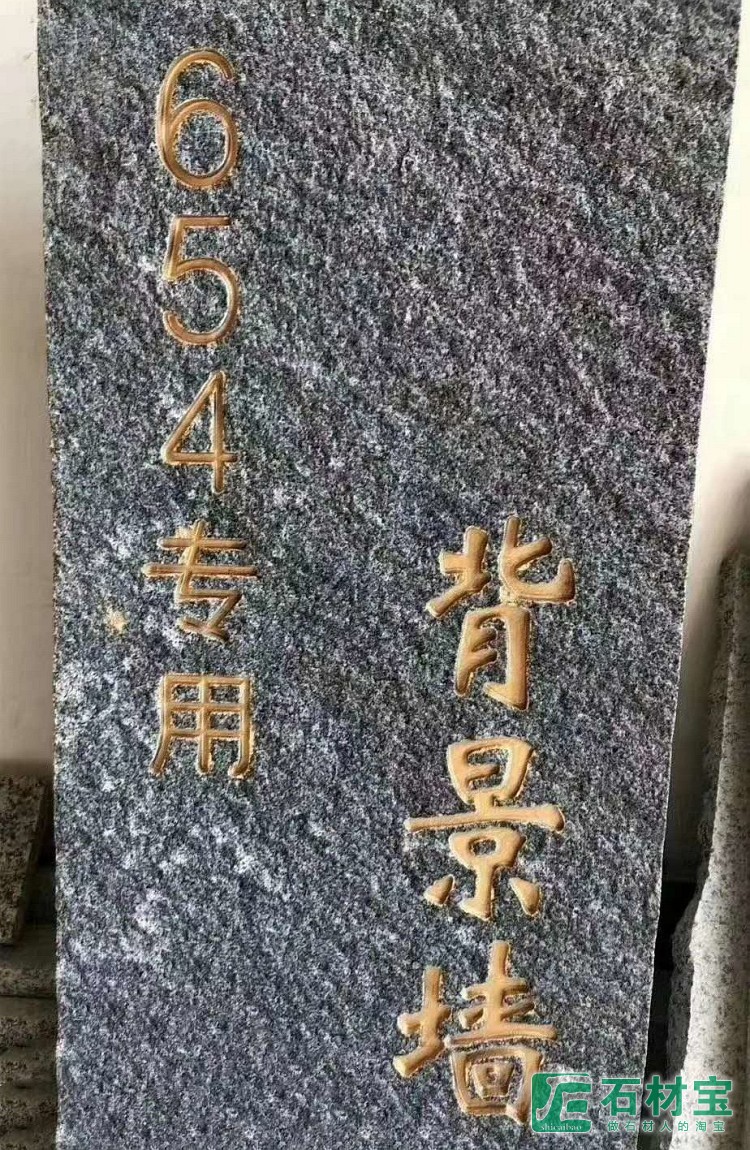 654专用
背景墙
石材宝
shicaibao
做石材人的淘宝